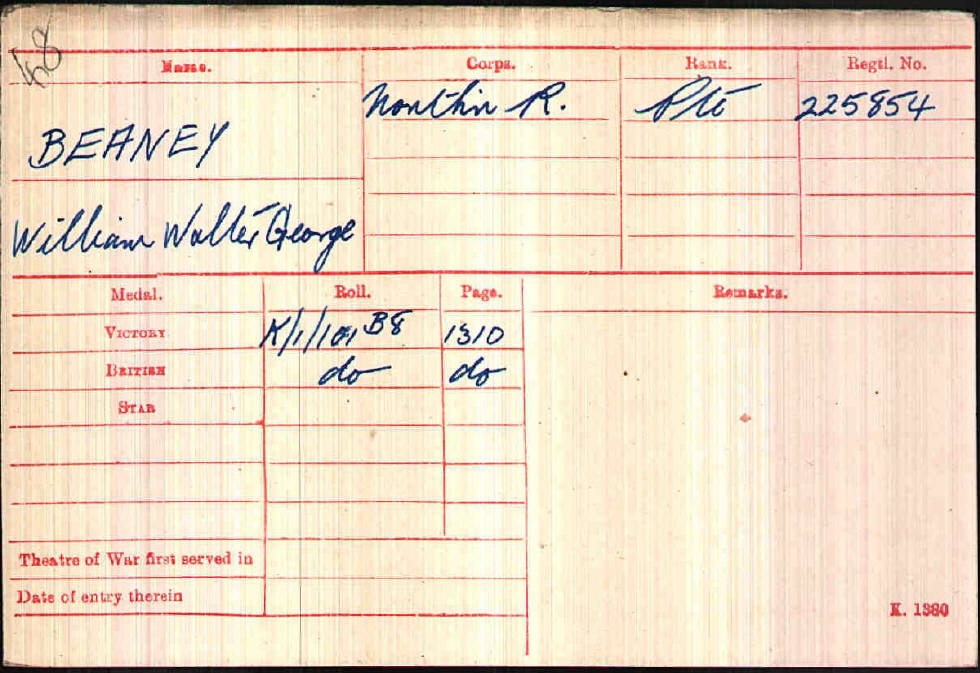 48
Name. Corps. Rank. Regtl. No.
BEANEY Northn R. Pte 225854
William Walter George
Medal. Roll. Page. Remarks.
VICTORY K/1/101 B8 1310
BRITISH do do
STAR
Theatre of War first served in
Date of entry therein
K. 1380